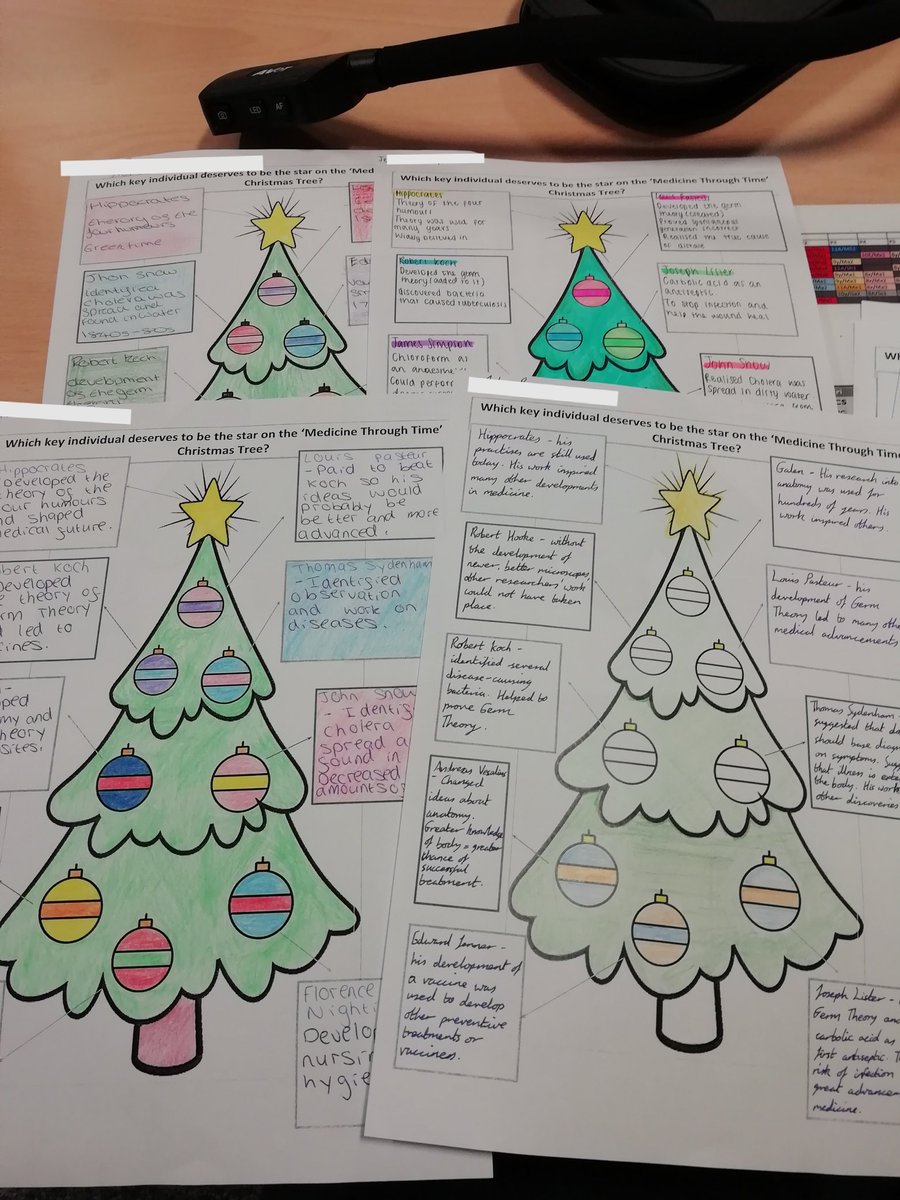 AVer
LED
AF
Which key individual deserves to be the star on the 'Med
Christmas Tree?
Hippocrates
theroy of the
four humours
Greentime
Jhon snow
identified
cholera was
spread and
found in water
1840s-50s
Robert Koch
development
of the germ
Which key individual deserves to be the star on the 'Medicine Through Time'
Christmas Tree?
Hippocrates
Theory of the four
humours
Theory was used for
many years
Widely believed in
Robert Koch
Developed the germ
theory (added to it)
Discovered bacteria
that caused tuberculosis
James Simpson
Chloroform as
an
Could perform
Developed the germ
theory (created)
Proved spontaneous
generation incorrect
Realised the true cause
of disease
Joseph Lister
Carbolic acid as an
antiseptic
To stop infection and
help the wound heal
John Snow
Realised Cholera was
spread in dirty water
Which key individual deserves to be the star on the 'Medicine Through Time'
Christmas Tree?
Hippocrates
Developed the
theory of the
four humours
and shaped
medical future.
Robert Koch
Developed
theory of
Germ Theory
led to
Louis Pasteur
- Paid to beat
Koch so his
ideas would
probably be
better and more
advanced.
Thomas Sydenham
- Identified
observation
and work on
diseases.
John Snow
- Identif
cholera
spread a
found in
decreased
amounts of
Florence
Nighti
Develo
nursin
hygie
Which key individual deserves to be the star on the 'Medicine Through Tim
Christmas Tree?
Hippocrates - his
practises are still used
today. His work inspired
many other developments
in medicine.
Robert Hooke - without
the development of
newer, better microscopes
other researchers' work
could not have taken
place.
Robert Koch -
identified several
disease-causing
bacteria. Helped to
prove Germ
Theory.
Andreas Vesalius
- Changed
ideas about
anatomy.
Greater knowledge
of body = greater
chance of
successful
treatment.
Edward Jenner -
his development of
a vaccine was
used to develop
other preventive
treatments or
vaccines.
Galen - His research into
anatomy was used for
hundreds of years. His
work inspired others.
Louis Pasteur - his
development of Germ
Theory led to many othe
medical advancements
Thomas Sydenham -
suggested that do
should base diagn
on symptoms. Sug
that illness is exte
the body. His work
other discoveries
Joseph Lister -
Germ Theory and
carbolic acid as
first antiseptic. T
risk of infection
great advance
medicine.